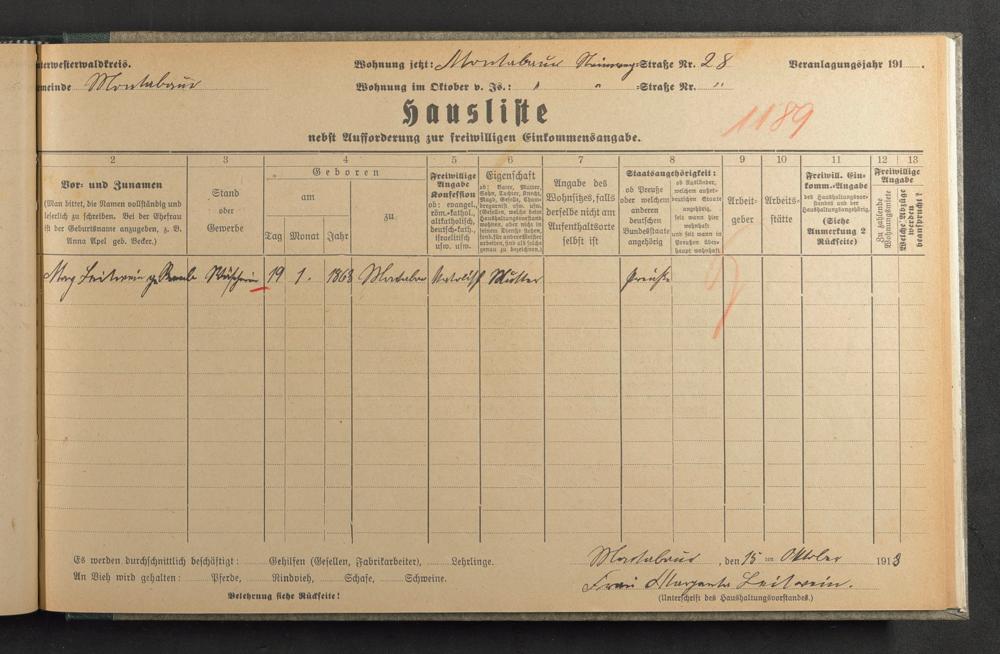 terwesterwaldkreis.
Wohnung jetzt: Montabaur Steinweg-Straße Nr. 28
Veranlagungsjahr 191 .
meinde Montabaur
Wohnung im Oktober v. Js.: " " -Straße Nr. "
Hausliste
nebst Aufforderung zur freiwilligen Einkommensangabe.
1189
2 3 4 5 6 7 8 9 10 11 12 13
Vor- und Zunamen
(Man bittet, die Namen vollständig und
leserlich zu schreiben. Bei der Ehefrau
ist der Geburtsname anzugeben, z. B.
Anna Apel geb. Becker.)
Stand
oder
Gewerbe
Geboren
am
zu
Tag Monat Jahr
Freiwillige
Angabe
Konfession
ob: evangel.,
röm.-kathol.,
altkatholisch,
deutsch-kath.,
israelitisch
usw. usw.
Eigenschaft
ob: Vater, Mutter,
Sohn, Tochter, Knecht,
Magd, Geselle, Cham-
bregarnist usw. usw.
(Gesellen, welche beim
Haushaltungsvorstand
wohnen, aber nicht in
seinen Diensten stehen,
sond. für andere Meister
arbeiten, sind als solche
genau zu bezeichnen.)
Angabe des
Wohnsitzes, falls
derselbe nicht am
Aufenthaltsorte
selbst ist
Staatsangehörigkeit:
ob Preuße
oder welchem
anderen
deutschen
Bundesstaate
angehörig
ob Ausländer,
welchem außer-
deutschen Staate
angehörig,
seit wann hier
wohnhaft
und seit wann in
Preußen über-
haupt wohnhaft
Arbeit-
geber
Arbeits-
stätte
Freiwill. Ein-
komm.-Angabe
des Haushaltungsvor-
standes und der
Haushaltungsangehörig.
(Siehe
Anmerkung 2
Rückseite)
Freiwillige
Angabe
Zu zahlende
Wohnungsmiete
Welche Abzüge
werden
beansprucht?
Leitwein 19 1. 1863 Montabaur Katholisch Mutter Preuße
Es werden durchschnittlich beschäftigt: Gehilfen (Gesellen, Fabrikarbeiter), Lehrlinge.
An Vieh wird gehalten: Pferde, Rindvieh, Schafe, Schweine.
Belehrung siehe Rückseite!
Montabaur, den 15 ten Oktober 1913
Frau Margareta Leitwein.
(Unterschrift des Haushaltungsvorstandes.)